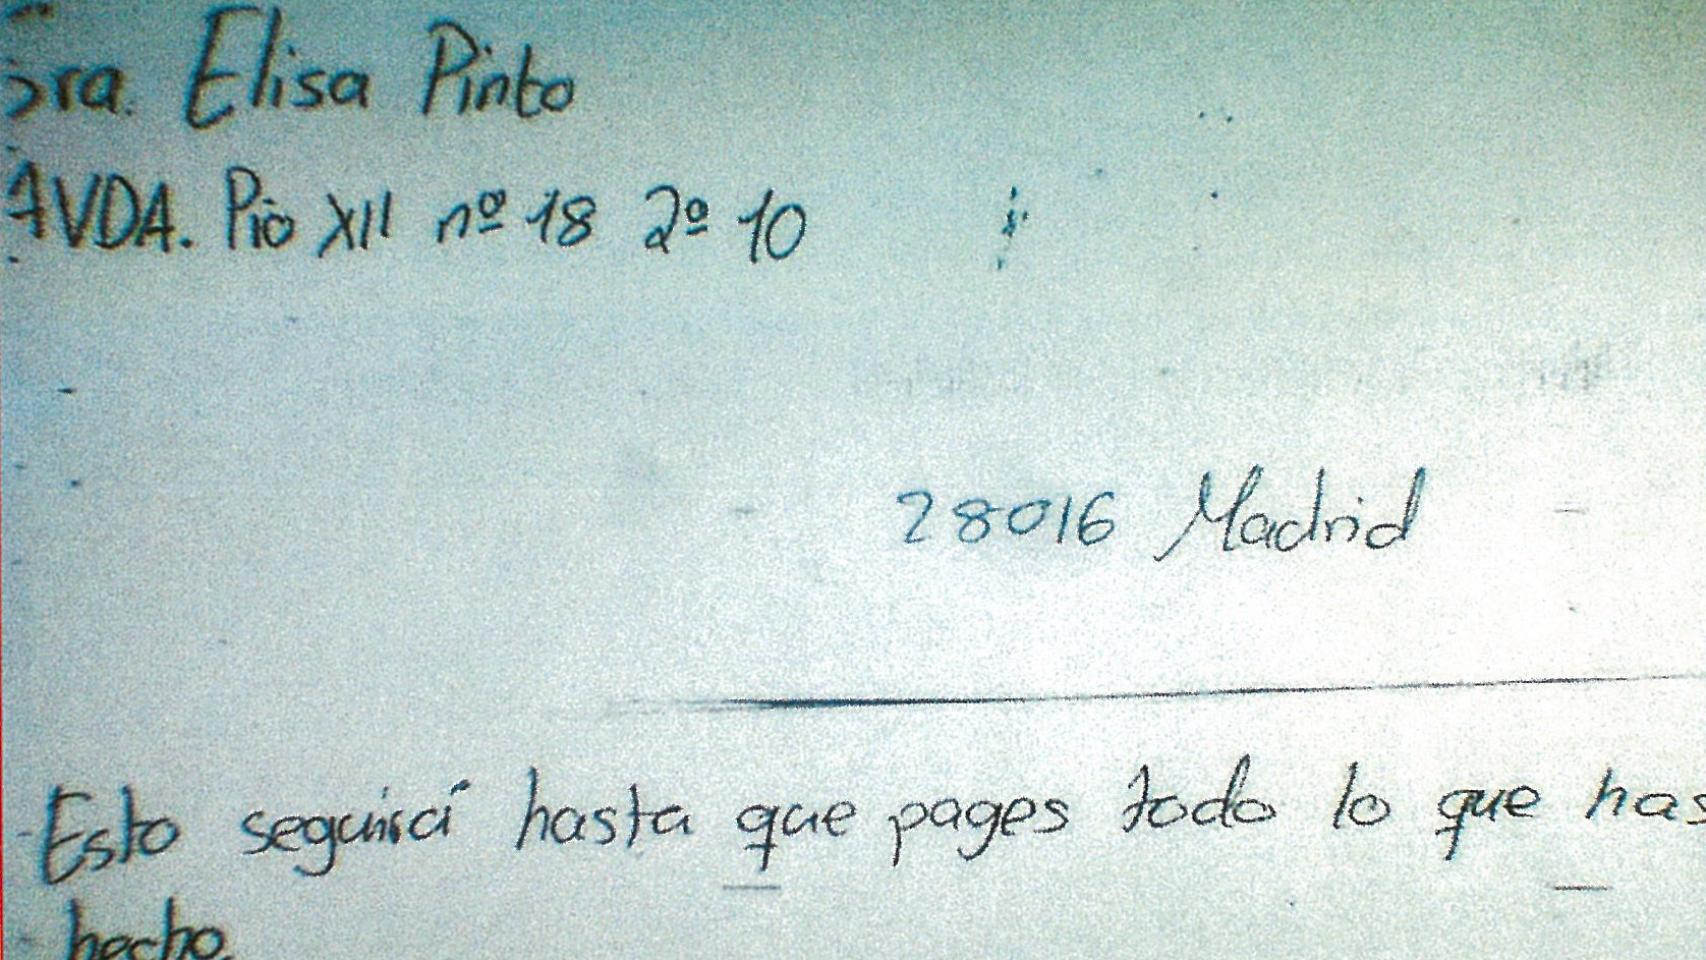 Sra. Elisa Pinto
AVDA. Pio XII nº 18 2º 10
28016 Madrid
Esto seguirá hasta que pages todo lo que has
hecho.